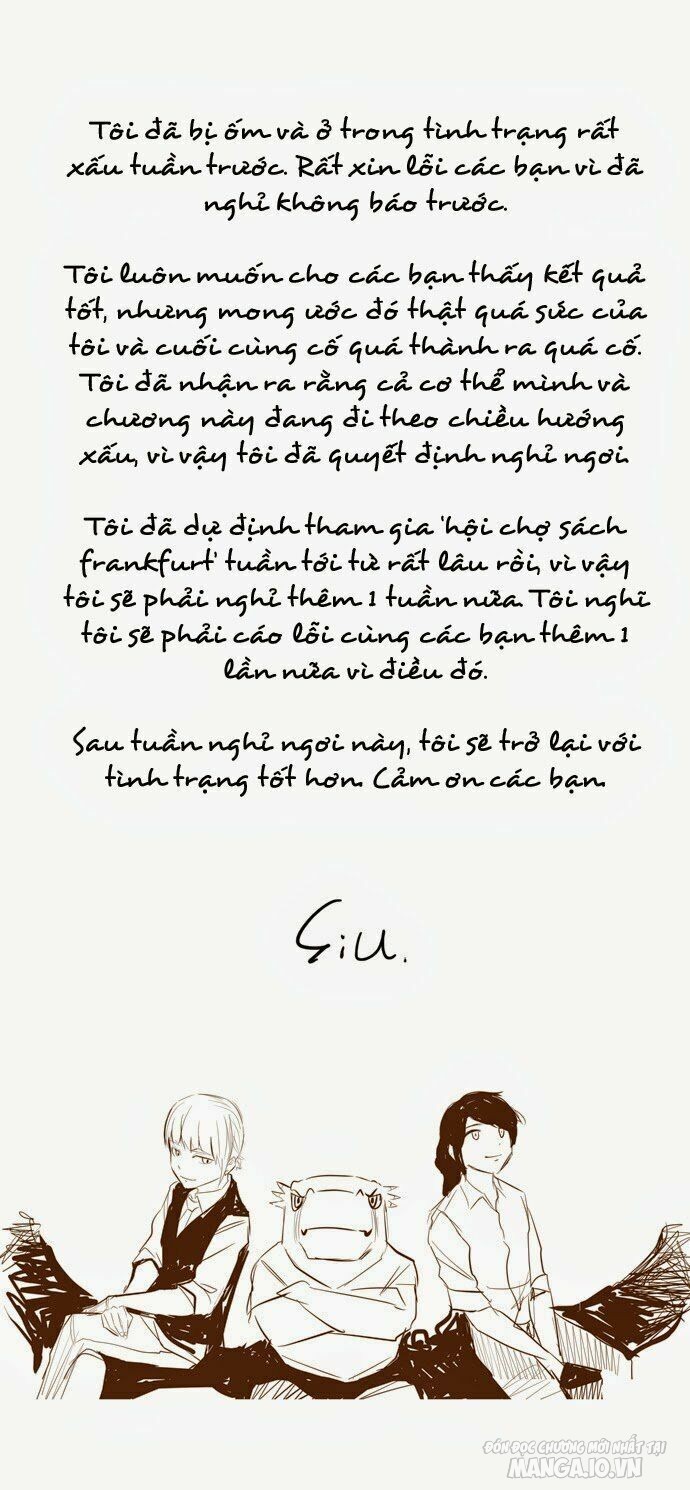 Tôi đã bị ốm và ở trong tình trạng rất
xấu tuần trước. Rất xin lỗi các bạn vì đã
nghỉ không báo trước.
Tôi luôn muốn cho các bạn thấy kết quả
tốt, nhưng mong ước đó thật quá sức của
tôi và cuối cùng cố quá thành ra quá cố.
Tôi đã nhận ra rằng cả cơ thể mình và
chương này đang đi theo chiều hướng
xấu, vì vậy tôi đã quyết định nghỉ ngơi.
Tôi đã dự định tham gia 'hội chợ sách
frankfurt' tuần tới từ rất lâu rồi, vì vậy
tôi sẽ phải nghỉ thêm 1 tuần nữa. Tôi nghĩ
tôi sẽ phải cáo lỗi cùng các bạn thêm 1
lần nữa vì điều đó.
Sau tuần nghỉ ngơi này, tôi sẽ trở lại với
tình trạng tốt hơn. Cảm ơn các bạn.
SiU.
ĐÓN ĐỌC CHƯƠNG MỚI NHẤT TẠI
MANGA.IO.VN